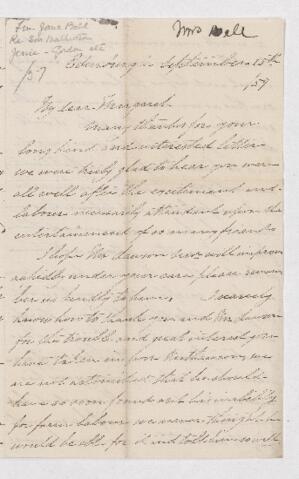 Mrs Bell
From Jane Bell
Re
Jessie - Gordon etc
/57
Edenboro September 15th
/57
My dear Margaret
Many thanks for your
long kind and interested letter
we were truly glad to hear you were
all well after the excitement and
labour necessarily attendant upon the
entertainment of so many friends
I hope Mr Lawson is well
under your care please remem
ber us kindly to him, I scarcely
know how to thank you and Mr Lawson
for the trouble and great interest you
have taken in him we
are not astonished that he should
have so soon found out his inability
for farm labour we never thought he
would be able for it and told him so well